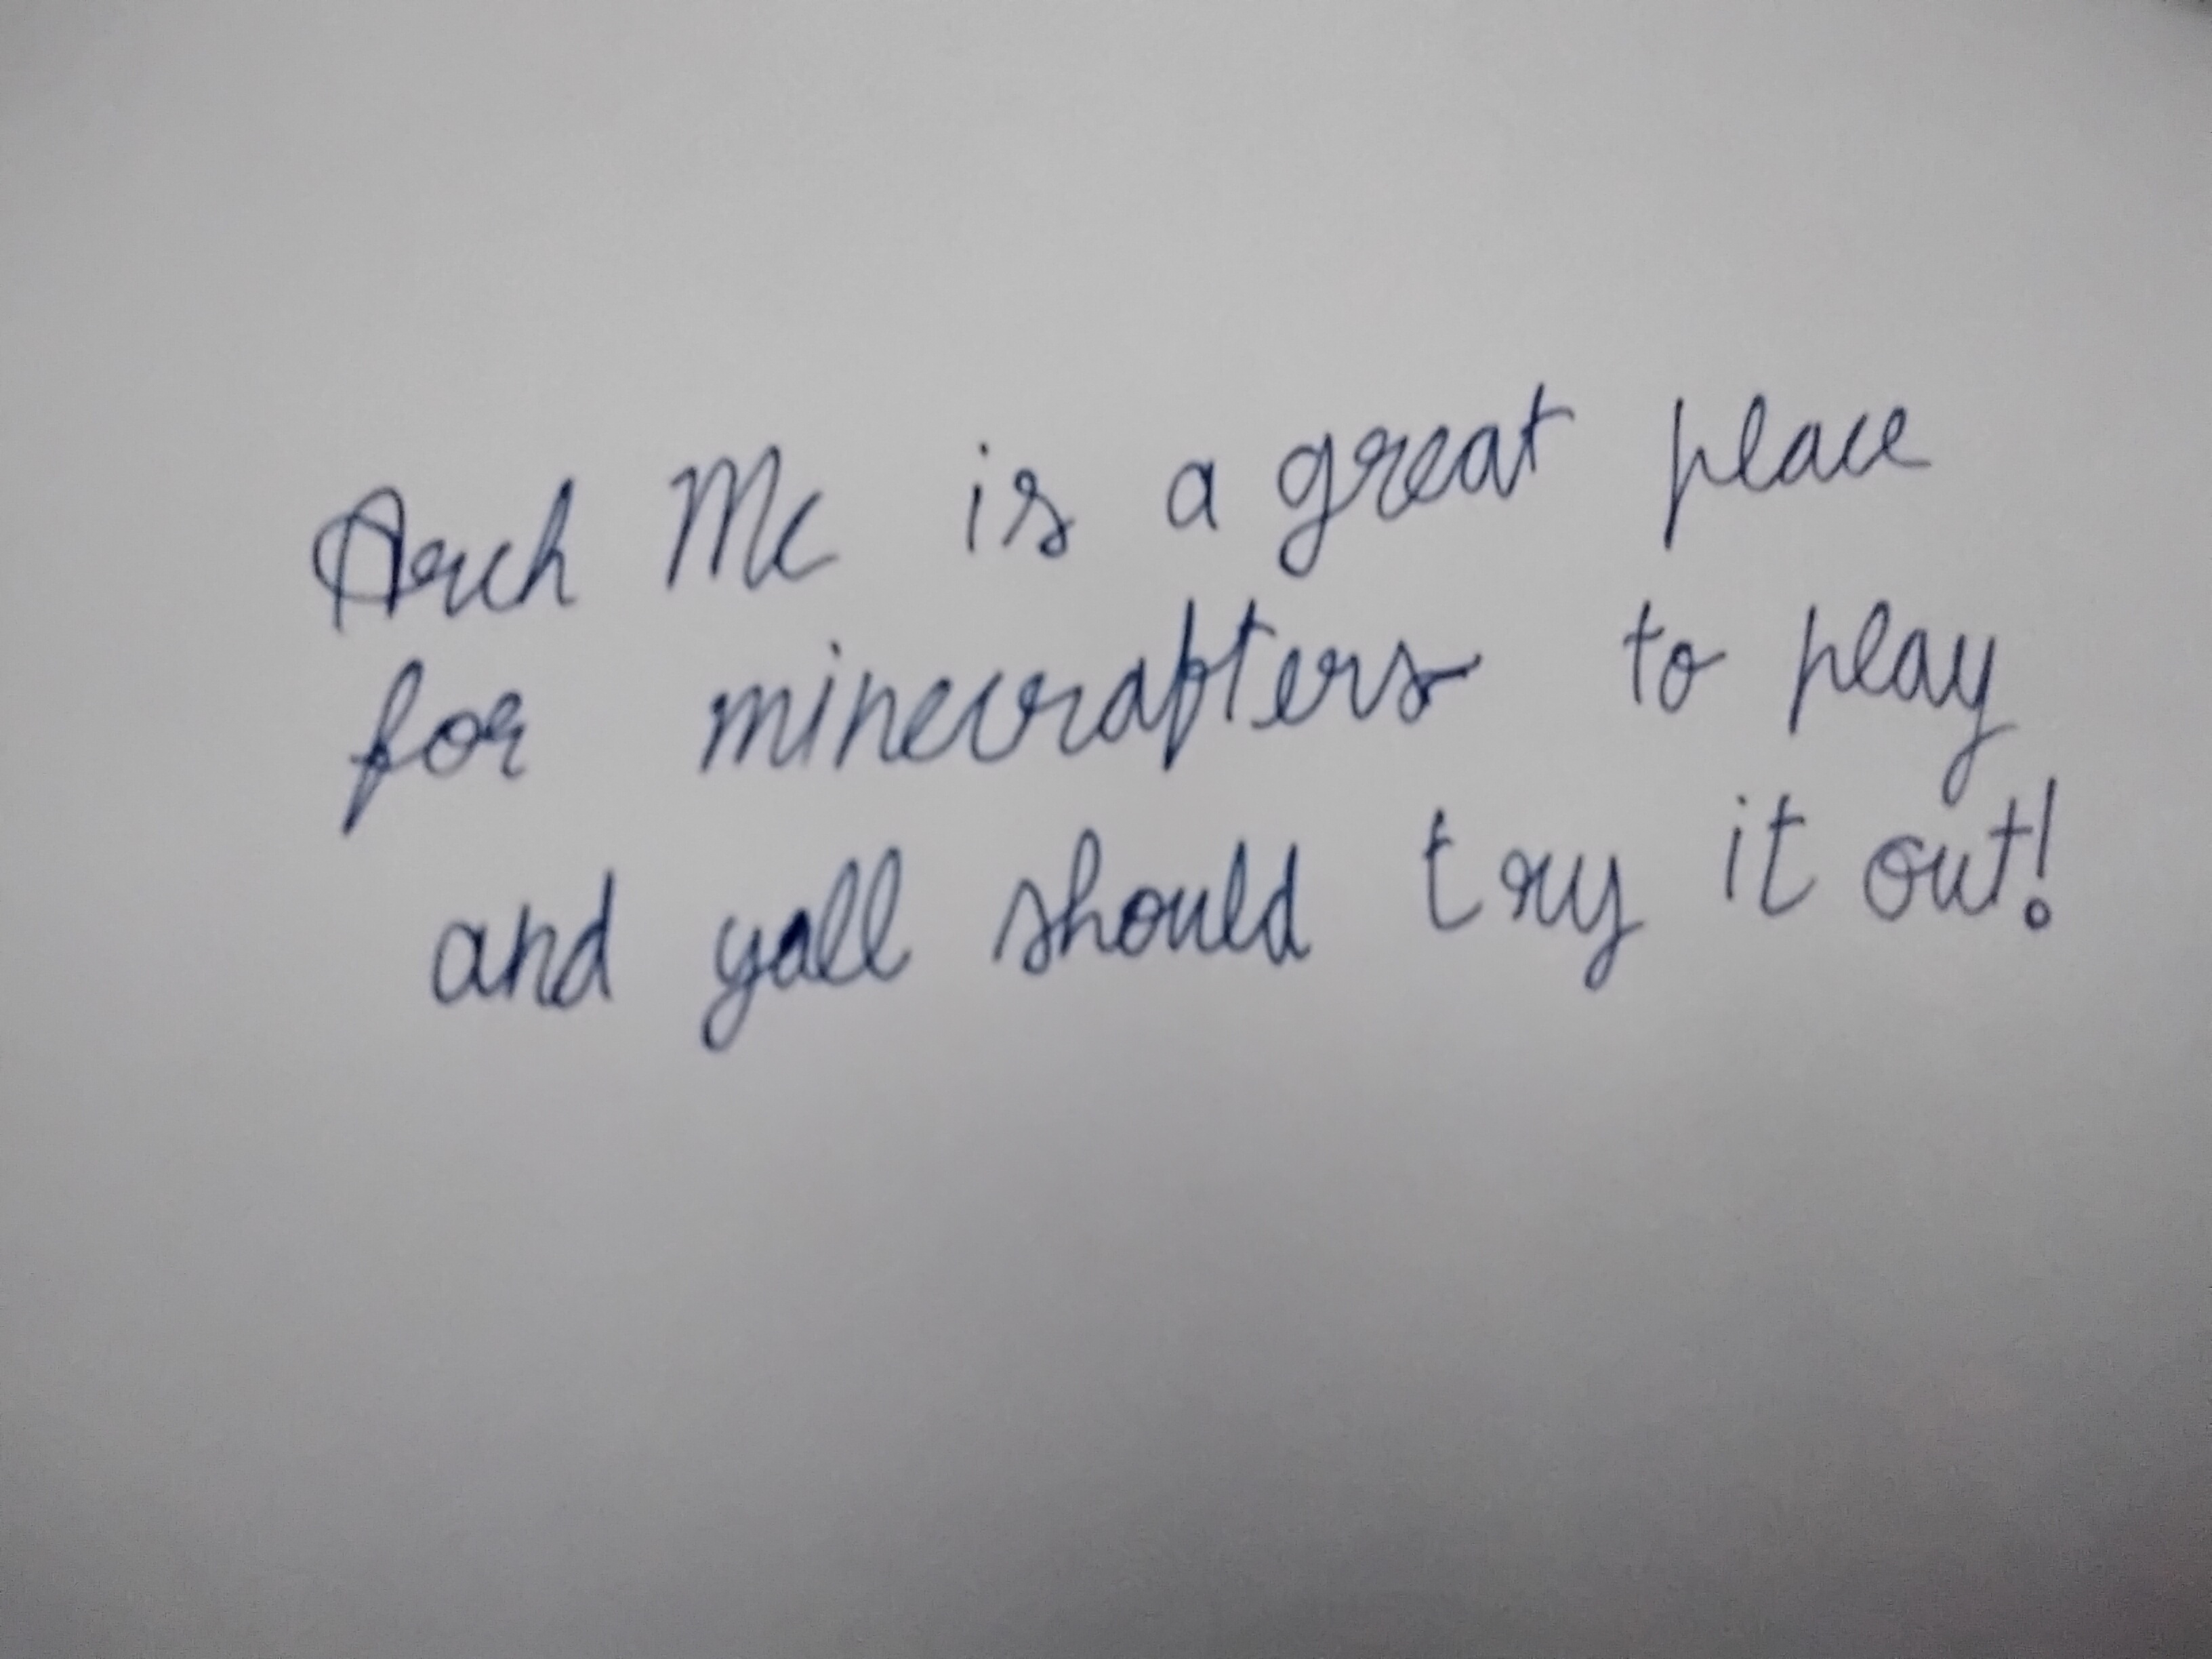 Arch Mc is a great place
for minecrafters to play
and yall should try it out!